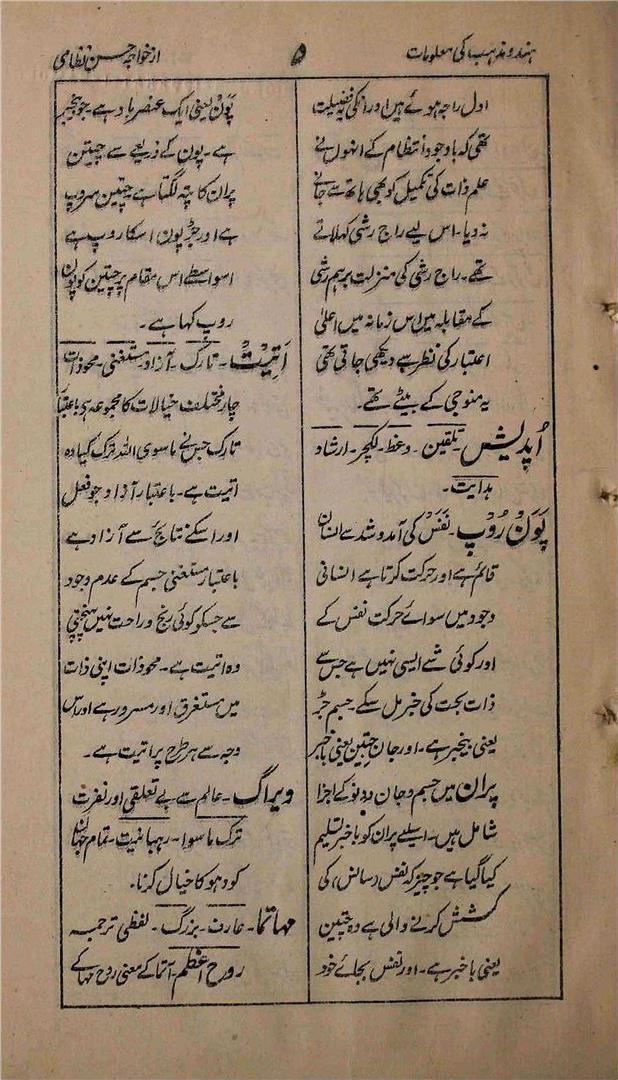 ہندو مذہب کی معلومات
۵
از خواجہ حسن نظامی
اول راجہ ہوئے ہیں اور انکی یہ فضیلت
تھی کہ باوجود انتظام کے انہوں نے
علم ذات کی تکمیل کو بھی ہاتھ سے جانے
نہ دیا۔ اس لیے راج رشی کہلاتے
تھے۔ راج رشی کی منزلت برہم رشی
کے مقابلہ میں اس زمانہ میں اعلیٰ
اعتبار کی نظر سے دیکھی جاتی تھی
یہ منوجی کے بیٹے تھے۔
اُپدیش۔ تلقین۔ وعظ۔ لکچر۔ ارشاد
ہدایت۔
پَوَنْ رُوْپ۔ نَفَسْ کی آمد و شد سے انسان
قائم ہے اور حرکت کرتا ہے انسانی
وجود میں سوائے حرکت نفس کے
اور کوئی شے ایسی نہیں ہے جس سے
ذات بحت کی خبر مل سکے۔ جسم جڑ
یعنی بیخبر ہے۔ اور جان چتین یعنی باخبر
پران میں جسم و جان دونو کے اجزا
شامل ہیں۔ اسلیے پران کو باخبر تسلیم
کیا گیا ہے جو چیز کہ نفس (سانس) کی
کشش کرنے والی ہے وہ چتین
یعنی باخبر ہے۔ اور نفس بجائے خود
پَوَنْ یعنی ایک عنصر باد ہے۔ جو بیخبر
ہے۔ پون کے ذریعے سے چیتن
پران کا پتہ لگتا ہے چتین سروپ
ہے اور جڑ پون اسکا روپ ہے
اسواسطے اس مقام پر چتین کو پون
روپ کہا ہے۔
اَتِیْتْ۔ تارک۔ آزاد۔ مستغنی۔ محوذات
چار مختلف خیالات کا مجموعہ ہی باعتبار
تارک جس نے ماسوی اللہ ترک کیا وہ
اتیت ہے۔ باعتبار آزاد جو فعل
اور اسکے نتائج سے آزاد ہے
باعتبار مستغنی جسم کے عدم وجود
سے جسکو کوئی رنج و راحت نہیں پہنچتی
وہ اتیت ہے۔ محوذات اپنی ذات
میں مستغرق اور مسرور ہے اور اس
وجہ سے ہر طرح پر اتیت ہے۔
ویراگ۔ عالم سے بے تعلقی اور نفرت
ترک ماسوا۔ رہبانیت۔ تمام جہان
کو دہوکا خیال کرنا۔
مہاتما۔ عارف۔ بزرگ۔ لفظی ترجمہ
روح اعظم۔ آتما کے معنی روح مہا کے